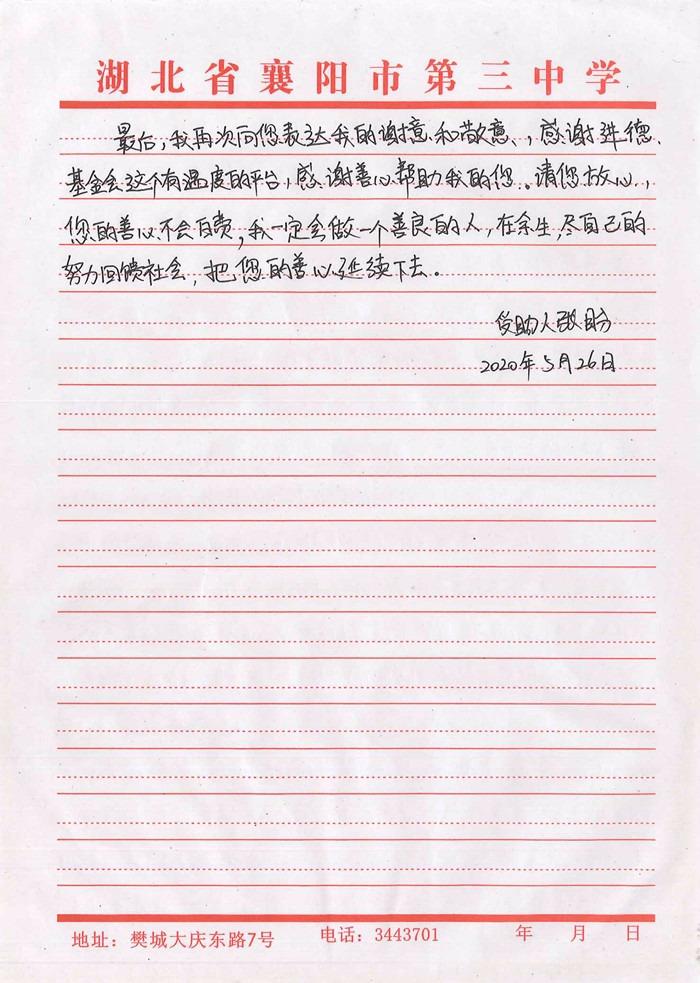 湖北省襄阳市第三中学
最后，我再次向您表达我的谢意和敬意，感谢进德
基金会这个有温度的平台，感谢善心帮助我的您。请您放心，
您的善心不会白费，我一定会做一个善良的人，在余生，尽自己的
努力回馈社会，把您的善心延续下去。
受助人
2020年5月26日
地址：樊城大庆东路7号 电话：3443701 年 月 日